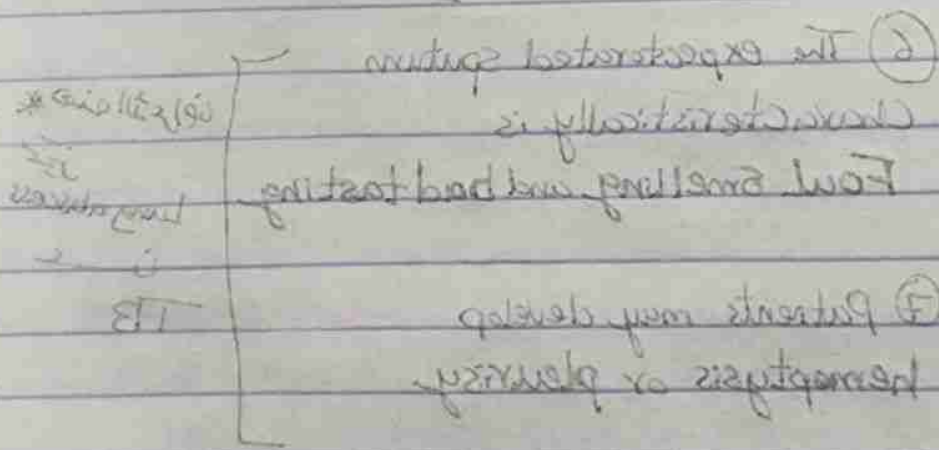 ⑥ The expectorated sputum
characteristically is
Foul smelling and bad tasting
⑦ Patients may develop
hemoptysis or pleurisy
بين
Lung abscess
TB